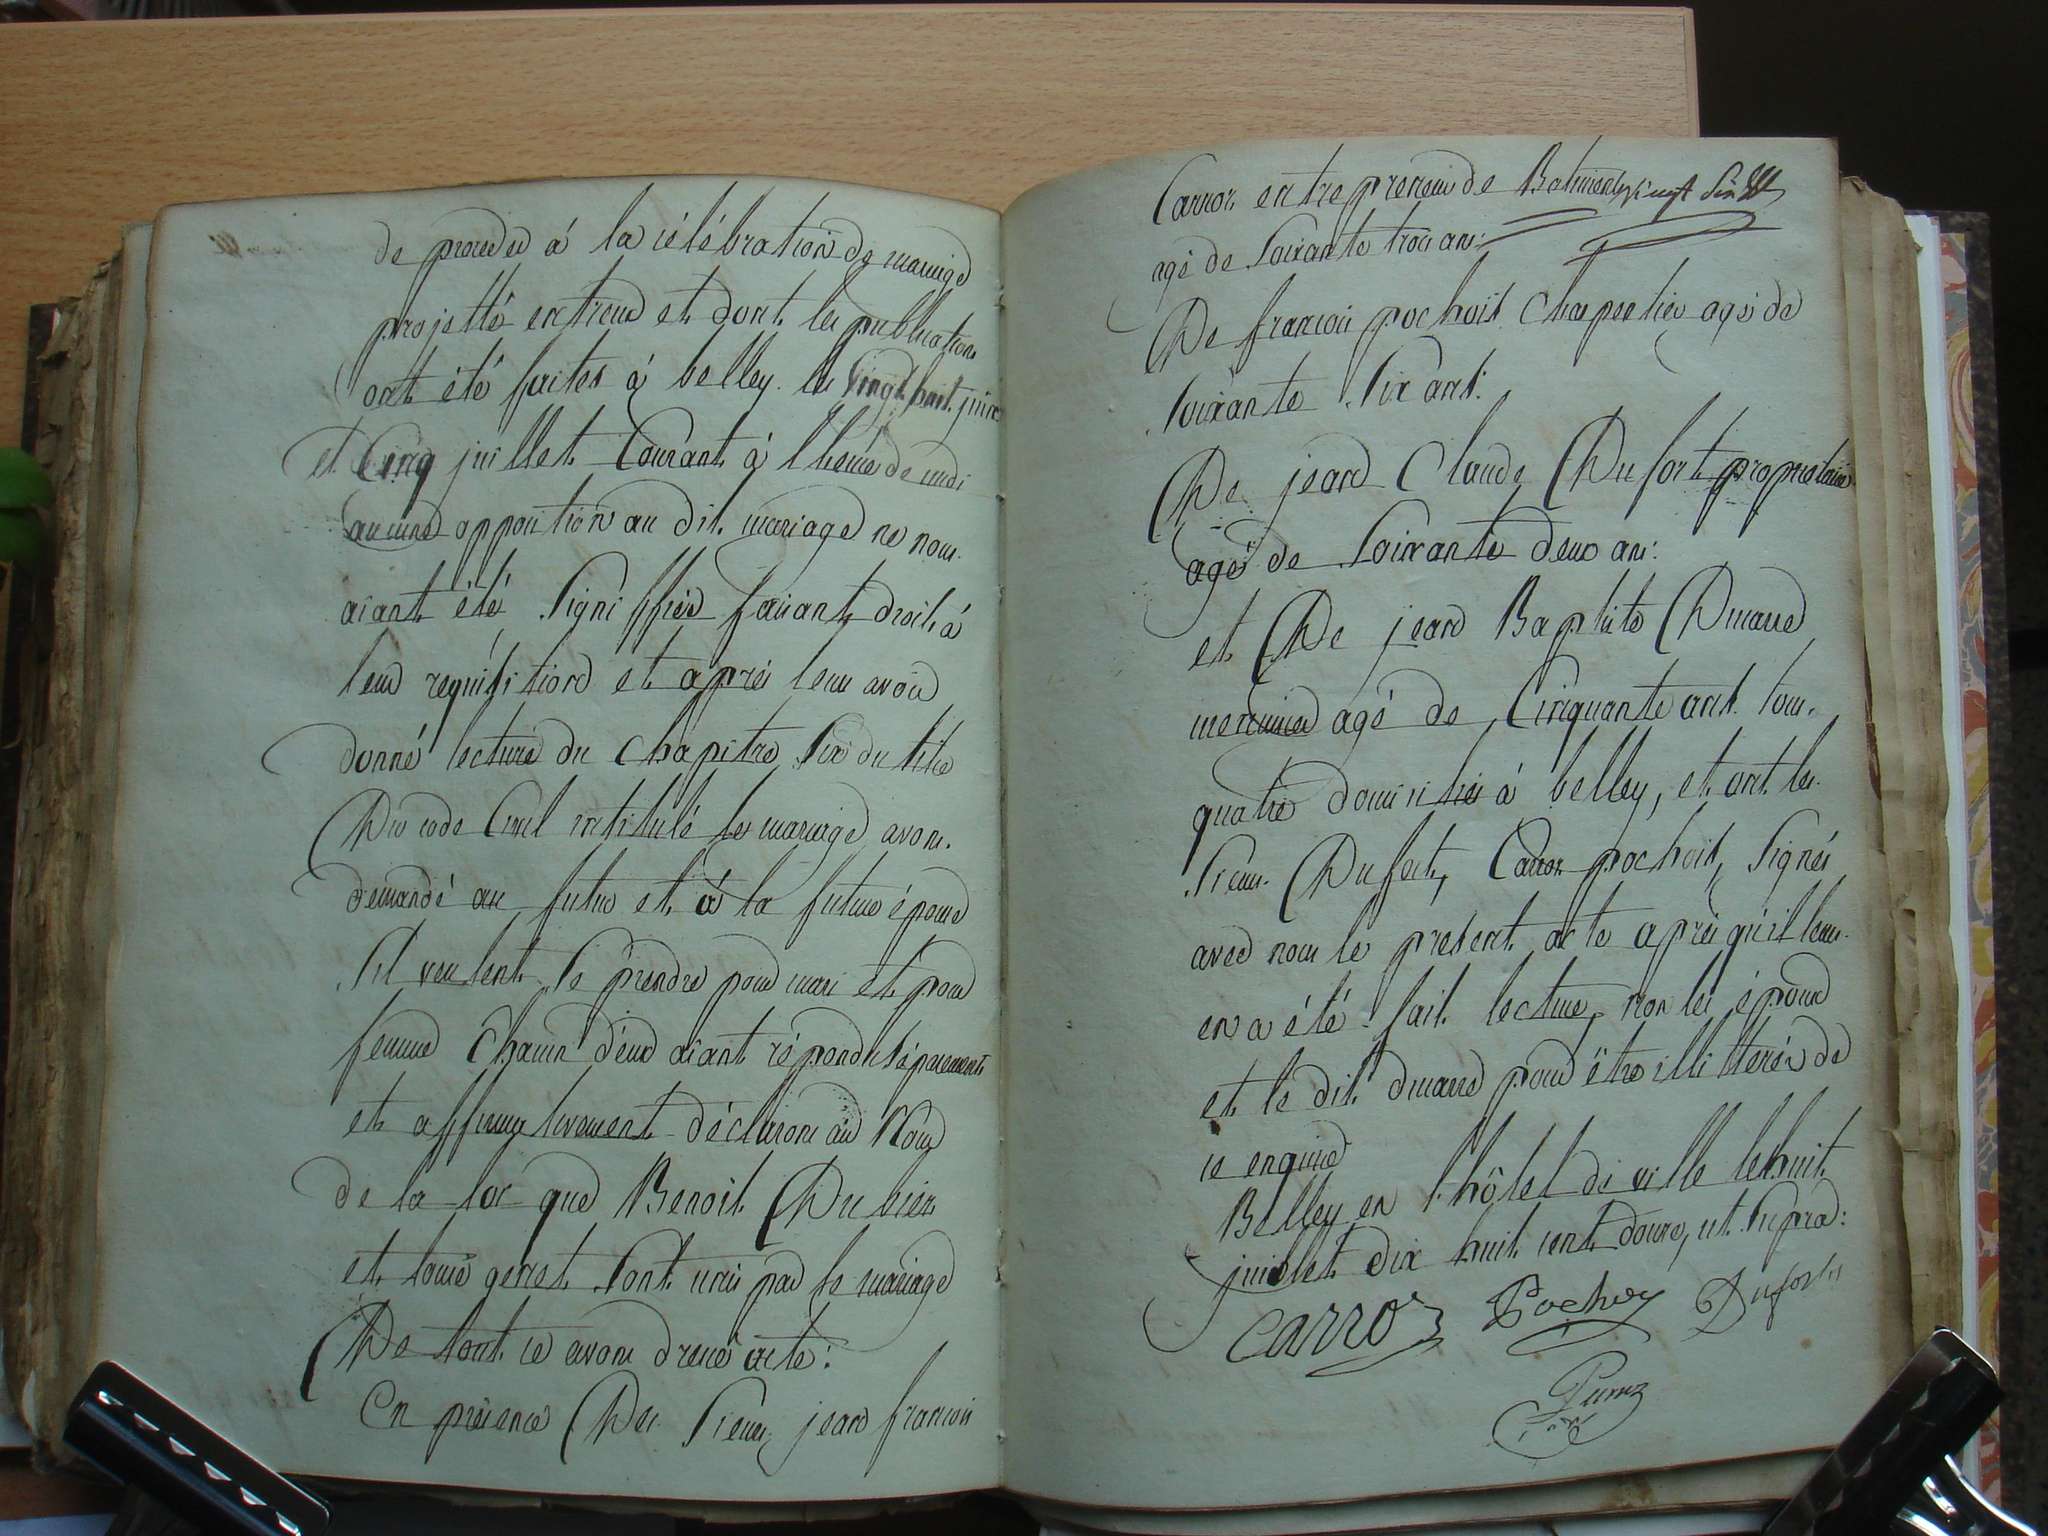 de proceder á la célébration de mariage
projetté entreux et dont les publications
ont été faites á belley les vingt huit juin
et Cinq juillet Courant á l'heure de midi
aucune opposition au dit mariage ne nous
aiant été Signiffiée faisant droit á
leur requisition et aprés leur avoir
donné lecture du chapitre Six du titre
Du code Civil intitulé le mariage, avons
demandé au futur et á la future épouse
S'il veulent Se prendre pour mari et pour
femme Chacun d'eux aiant répondu séparement
et affirmativement déclarons au Nom
de la loi que Benoit Dubier
et genet Sont unis par le mariage
De tout ce avons dressé acte:
En présence Des Sieurs jean francois
Carror entrepreneur de Batiments vingt Six
agé de Soixante trois ans:
De francois pochoit Charpentier agé de
Soixante Six ans:
De jean Claude Dufort propriétaire
agé de Soixante deux ans:
et De jean Baptiste Dmarre
agé de Cinquante ans tous
quatre domiciliés á belley, et ont les
Sieurs Dufort, Carror pochoit, Signés
avec nous le present acte aprés qu'il leur
en a été fait lecture, non les époux
et le dit dmarre pour être illitterés de
ce enquis
Belley en l'hôtel de ville le huit
juillet dix huit cent douze, ut Supra:
Carror Pochoy Dufort